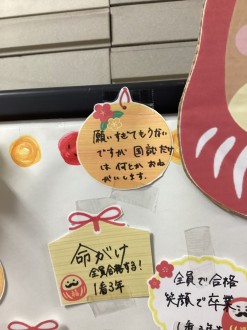 願いすぎてもうない
ですが 国試だけ
は 何とか おね
がいします。
命がけ
全員合格する!
1看3年
全員で合格
笑顔で卒業